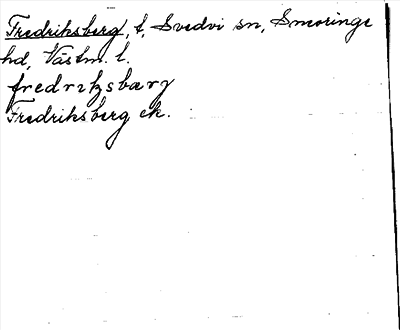 Fredriksberg, t, Svedvi sn, Snevringe
hd, Västm. l.
fredrıksbærj
Fredriksberg ek.